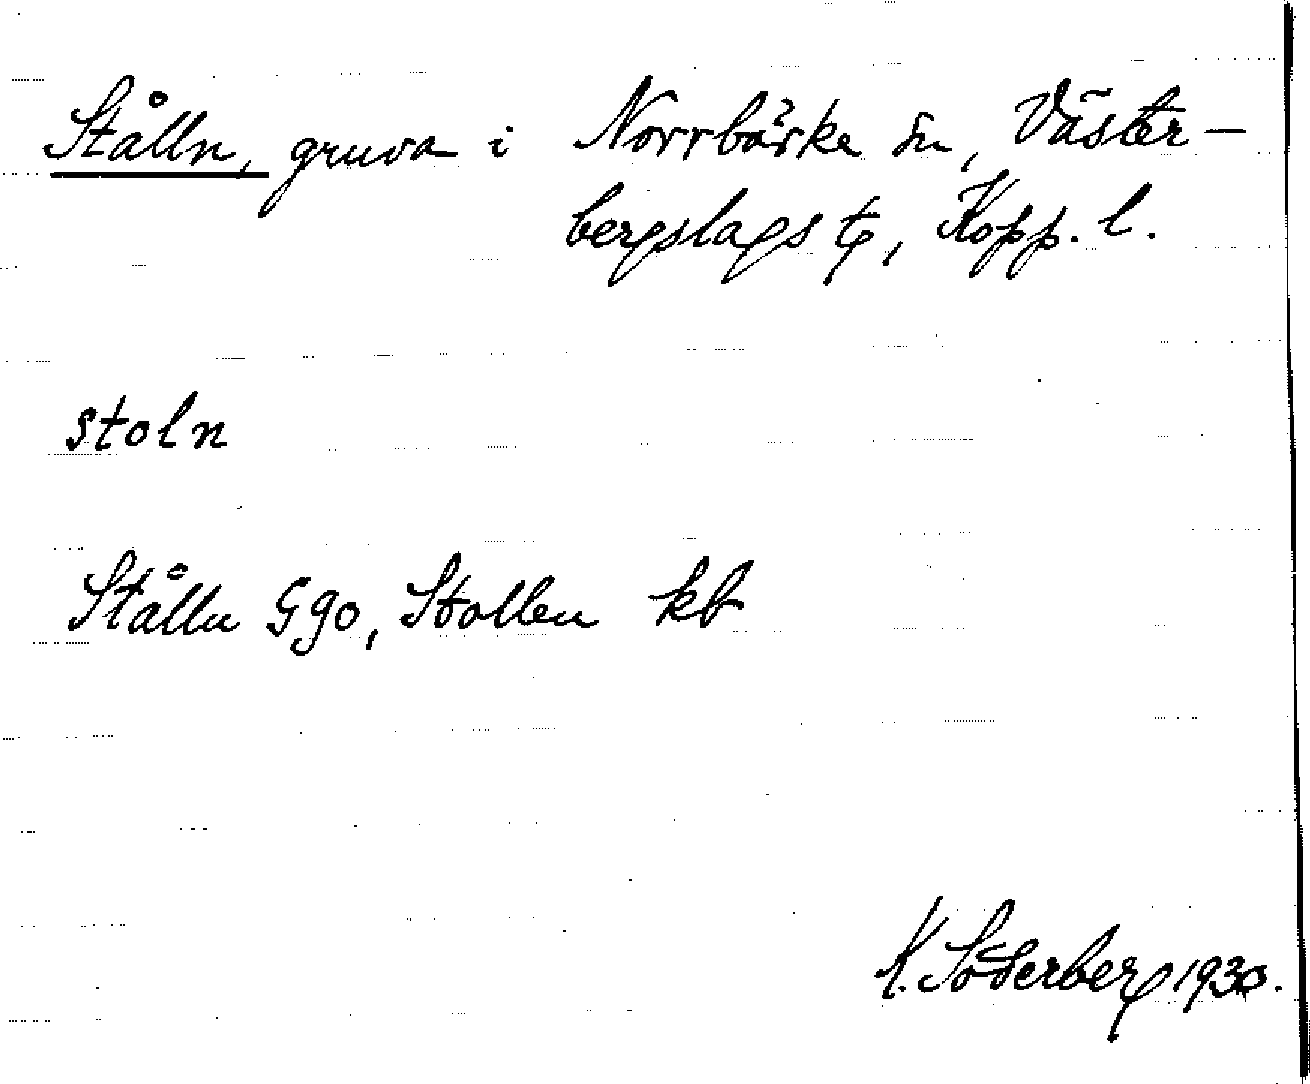 Stålln, gruva i Norrbärke sn, Väster-
bergslags tg, Kopp. l.
stoln
Stålln Ggo, Stollen kb
K. Söderberg 1930.